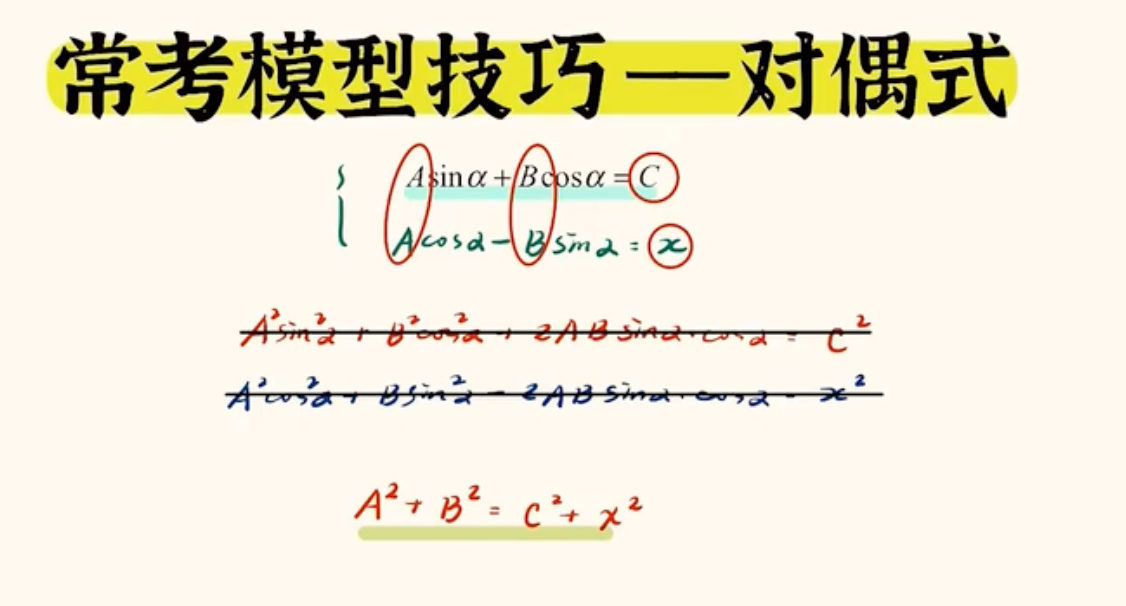 常考模型技巧—对偶式
Asinα+Bcosα=C
Acosα-Bsinα=x
A²sin²α+B²cos²α+2ABsinα·cosα=C²
A²cos²α+Bsin²α-2ABsinα·cosα=x²
A²+B²=C²+x²